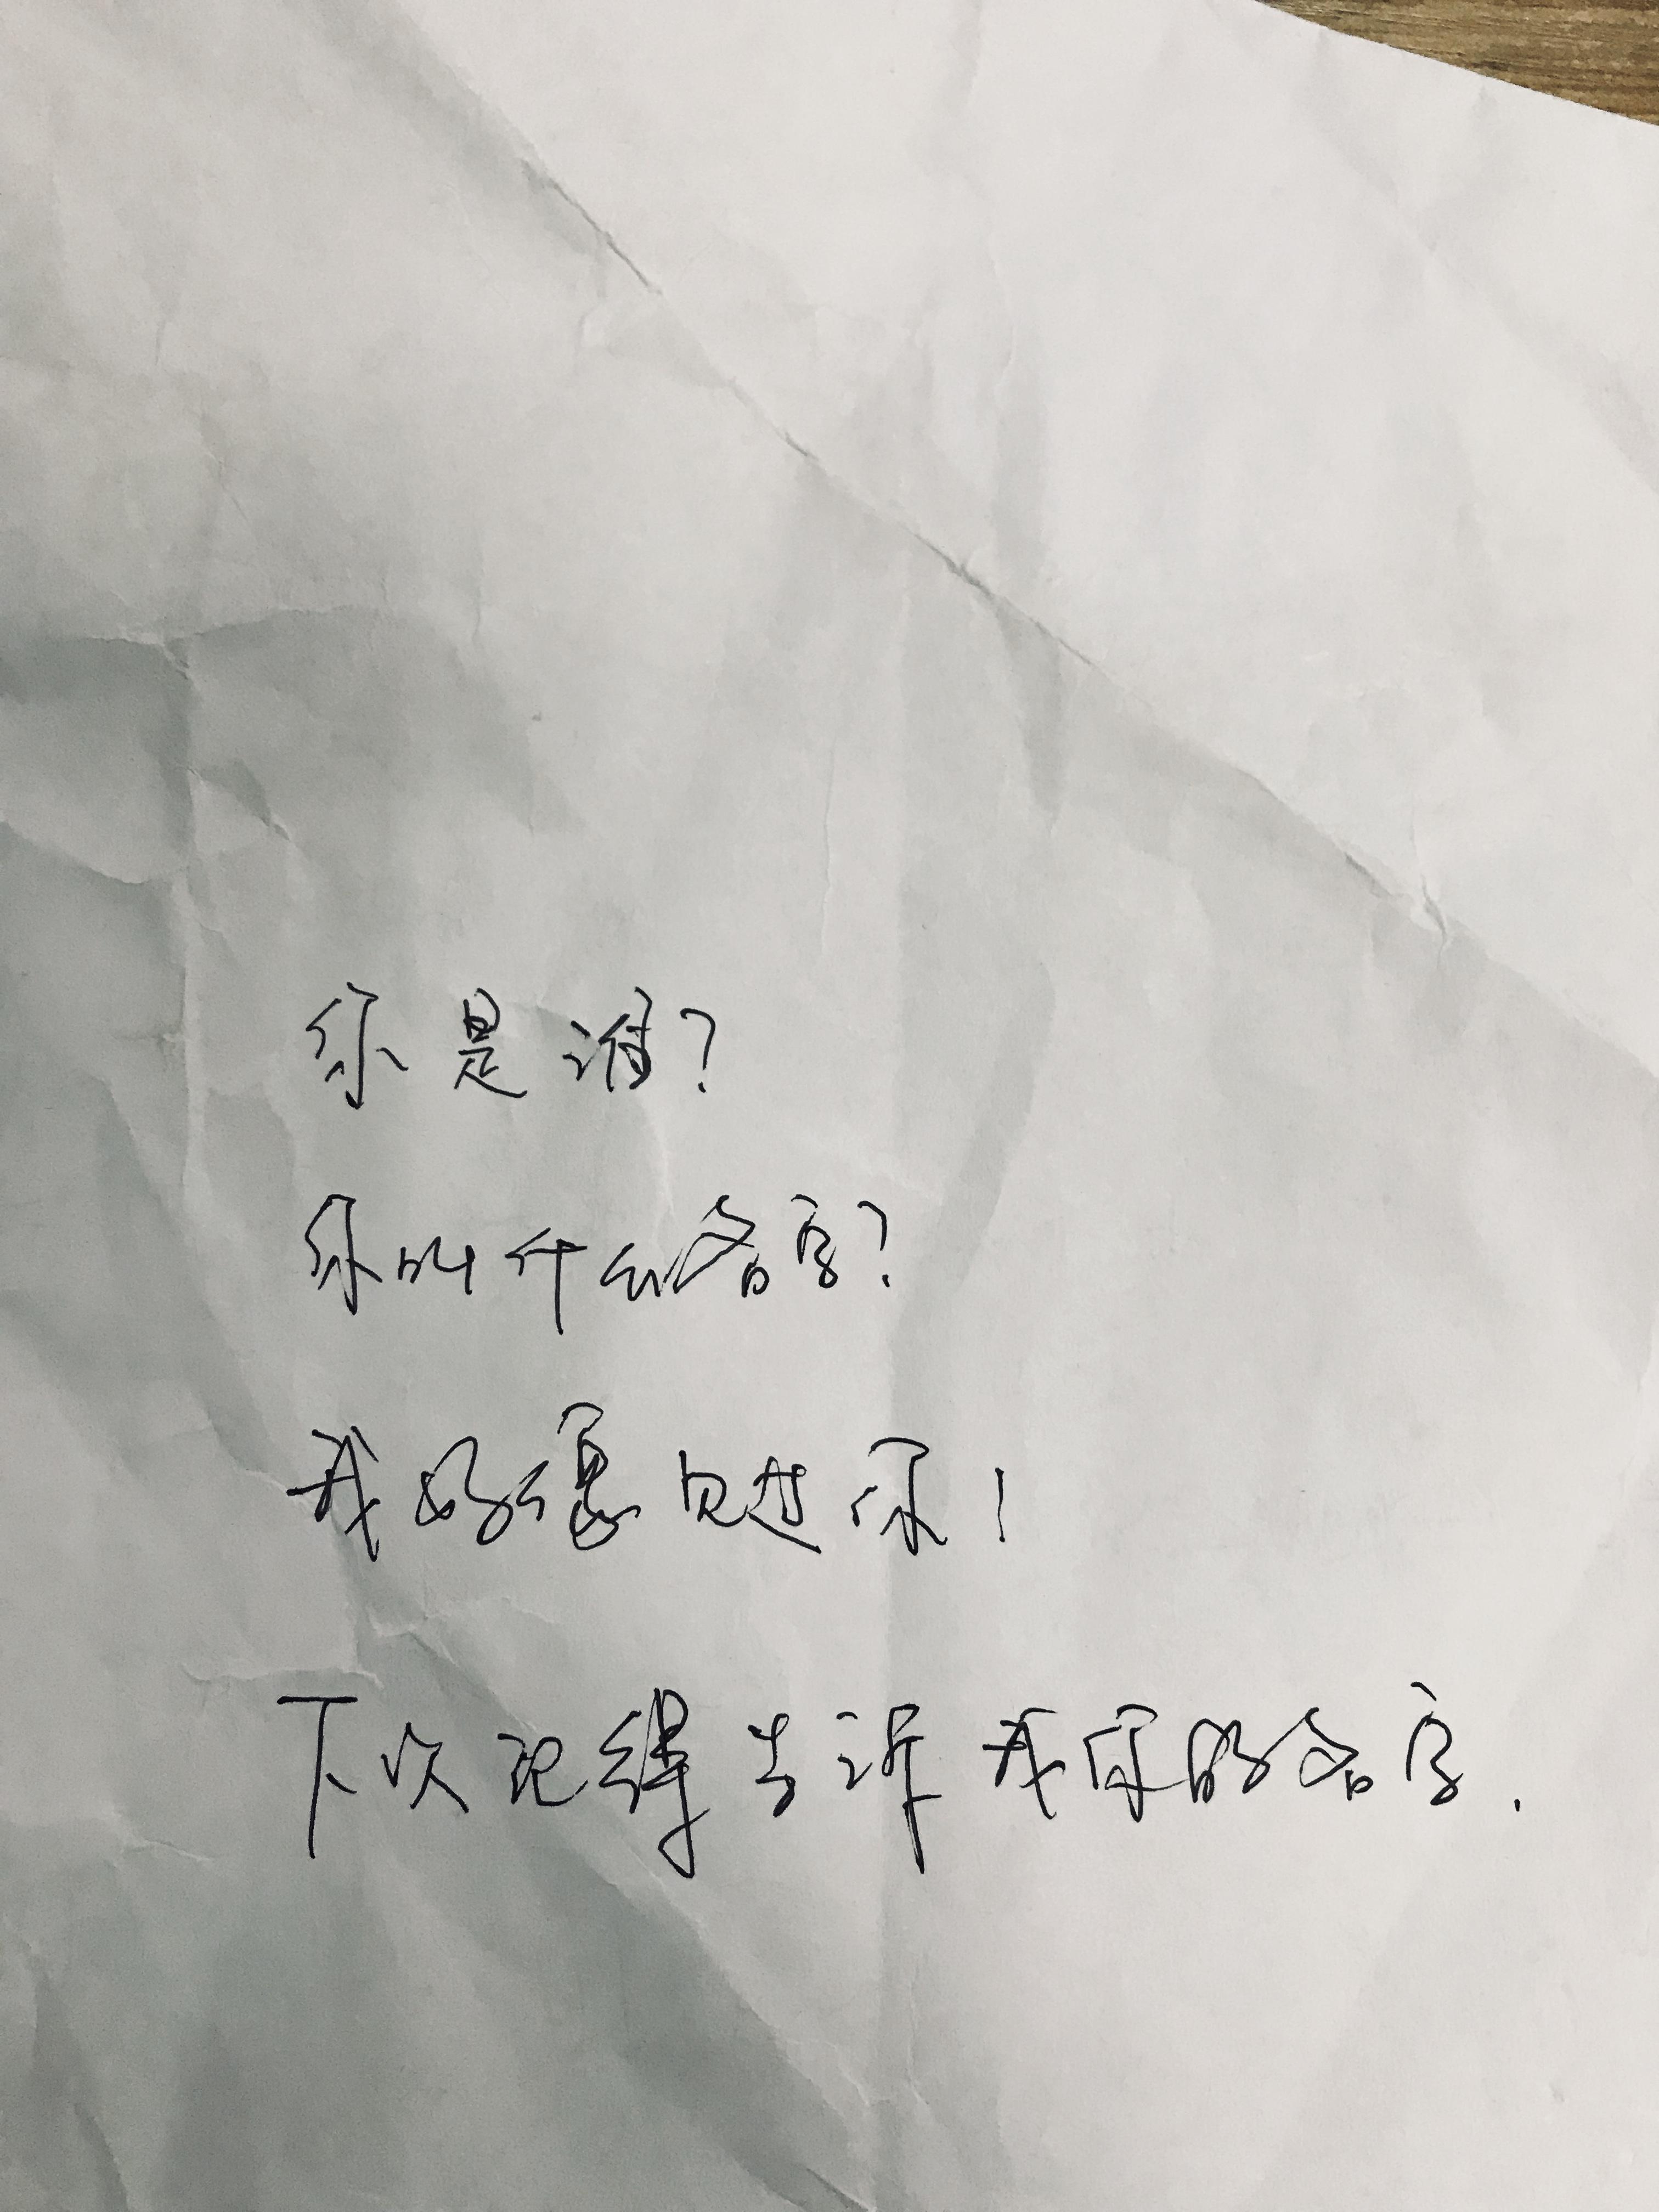 你是谁?
你叫什么名字?
我好像见过你!
下次记得告诉我你的名字.